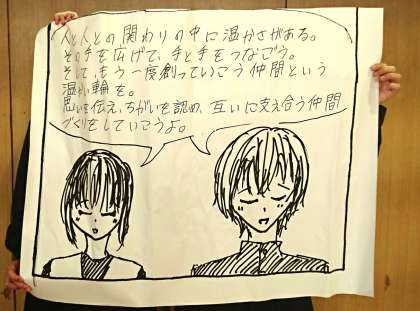 人と人との関わりの中に温かさがある。
その手を広げて、手と手をつなごう。
そして、もう一度創っていこう仲間という
温かい輪を。
思いを伝え、ちがいを認め、互いに支え合う仲間
づくりをしていこうよ。